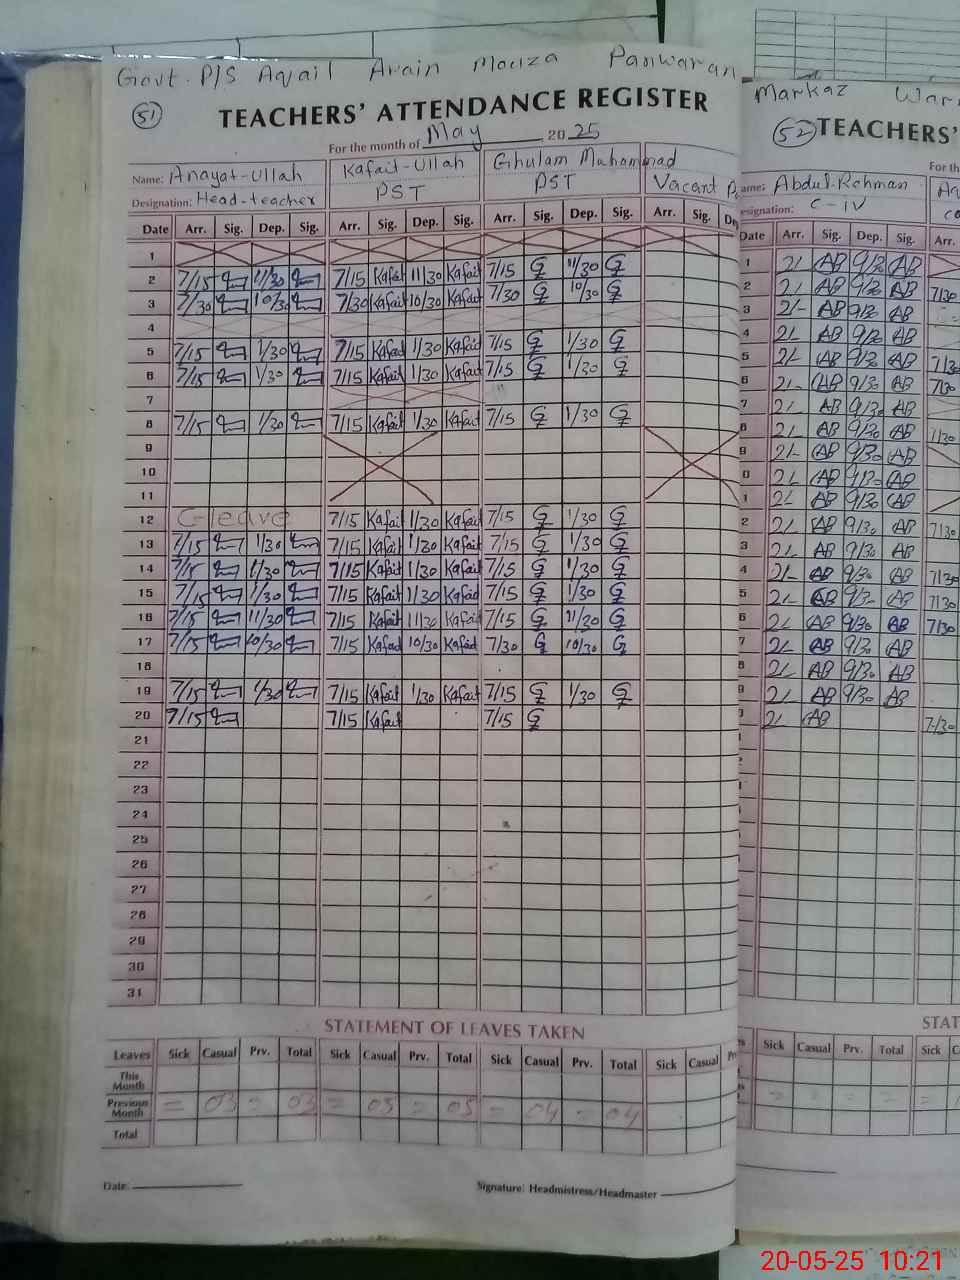 Govt. P/S Aqail Arain Mouza Panwaran
51 TEACHERS' ATTENDANCE REGISTER
For the month of May 2025
Name: Anayat-Ullah Kafait-Ullah Ghulam Muhammad
Designation: Head-teacher PST PST Vacant
Date Arr. Sig. Dep. Sig. Arr. Sig. Dep. Sig. Arr. Sig. Dep. Sig. Arr. Sig. Dep
1
2 7/15 11/30 7/15 Kafait 11/30 Kafait 7/15 G 11/30 G
3 7/30 10/30 7/30 Kafait 10/30 Kafait 7/30 G 10/30 G
4
5 7/15 1/30 7/15 Kafait 1/30 Kafait 7/15 G 1/30 G
6 7/15 1/30 7/15 Kafait 1/30 Kafait 7/15 G 1/30 G
7
8 7/15 1/30 7/15 Kafait 1/30 Kafait 7/15 G 1/30 G
9
10
11
12 C-leave 7/15 Kafait 1/30 Kafait 7/15 G 1/30 G
13 7/15 1/30 7/15 Kafait 1/30 Kafait 7/15 G 1/30 G
14 7/15 1/30 7/15 Kafait 1/30 Kafait 7/15 G 1/30 G
15 7/15 1/30 7/15 Kafait 1/30 Kafait 7/15 G 1/30 G
16 7/15 11/30 7/15 Kafait 11/30 Kafait 7/15 G 11/30 G
17 7/15 10/30 7/15 Kafait 10/30 Kafait 7/30 G 10/30 G
18
19 7/15 1/30 7/15 Kafait 1/30 Kafait 7/15 G 1/30 G
20 7/15 7/15 Kafait 7/15 G
21
22
23
24
25
26
27
28
29
30
31
STATEMENT OF LEAVES TAKEN
Leaves Sick Casual Prv. Total Sick Casual Prv. Total Sick Casual Prv. Total Sick Casual
This Month
Previous Month = 03 = 03 = 05 = 05 = 04 = 04
Total
Date: Signature: Headmistress/Headmaster
Markaz
52 TEACHERS'
For th
ame: Abdul-Rehman
esignation: C-IV
Date Arr. Sig. Dep. Sig. Arr.
1 2/- AB 9/30 AB
2 2/- AB 9/30 AB 7/30
3 2/- AB 9/30 AB
4 2/- AB 9/30 AB
5 2/- AB 9/30 AB 7/30
6 2/- AB 9/30 AB 7/30
7 2/- AB 9/30 AB
8 2/- AB 9/30 AB 7/30
9 2/- AB 9/30 AB
0 2/- AB 9/30 AB
1 2/- AB 9/30 AB
2 2/- AB 9/30 AB 7/30
3 2/- AB 9/30 AB
4 2/- AB 9/30 AB 7/30
5 2/- AB 9/30 AB 7/30
6 2/- AB 9/30 AB 7/30
7 2/- AB 9/30 AB
8 2/- AB 9/30 AB
9 2/- AB 9/30 AB
2/- AB 7/30
STAT
Sick Casual Prv. Total Sick
20-05-25 10:21